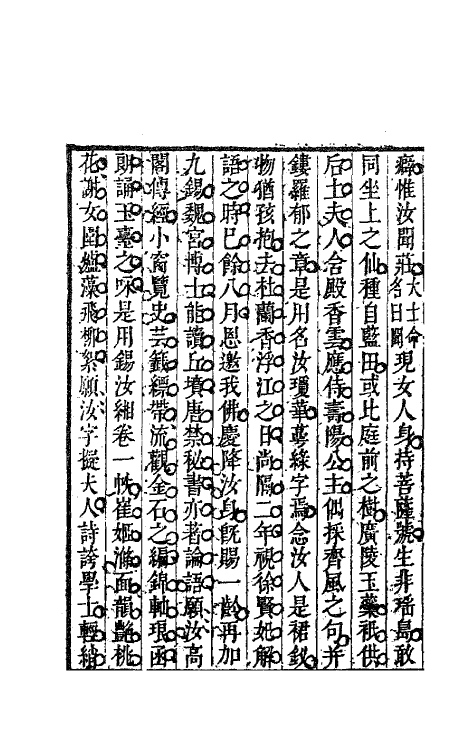 癖惟汝聞莊大士命名曰閏現女人身持菩薩號生非瑶島敢
同坐上之仙種自藍田或比庭前之樹廣陵玉蘂祇供
后土夫人含殿香雲應侍壽陽公主偶採齊風之句并
鏤羅郁之章是用名汝瓊華蕚綠字焉念汝人是裙釵
物猶孩抱去杜蘭香浮江之日尚隔二年視徐賢妃解
語之時已餘八月恩邀我佛慶降汝身旣賜一齡再加
九錫魏宮博士能讀丘墳唐禁秘書亦著論語願汝高
閣傳經小窗覽史芸籤縹帶流觀金石之編錦軸琅函
朗誦玉臺之咏是用錫汝緗卷一帙崔姬滌面龍艷桃
花謝女園蘊藻飛柳絮願汝字擬夫人詩誇學士輕綃